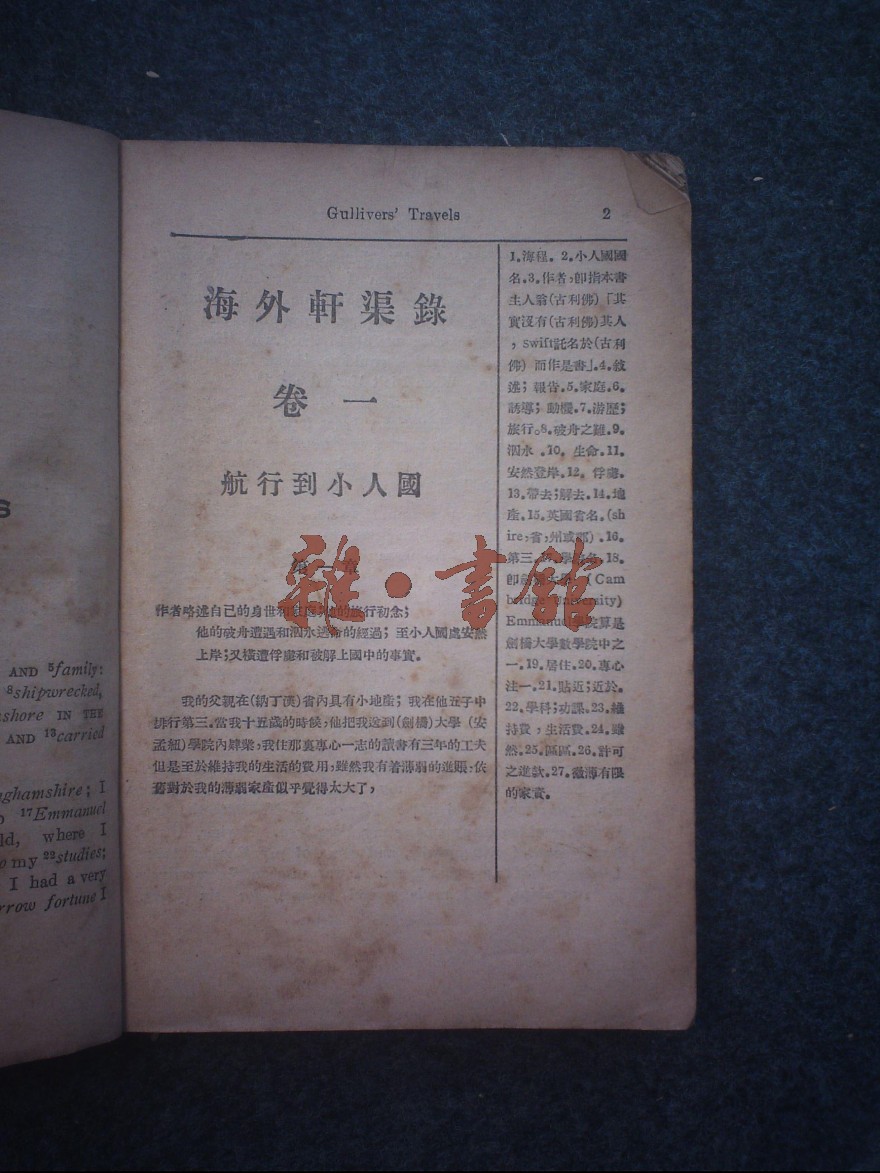 S
AND ⁵family:
⁸shipwrecked,
shore IN THE
AND ¹³carried
nghamshire; I
¹⁷Emmanuel
ld, where I
my ²²studies;
I had a very
rrow fortune I
Gullivers' Travels 2
海外軒渠錄
卷一
航行到小人國
章
作者略述自己的身世和家庭
他的破舟遭遇和泅水逃命的經過; 至小人國處安然
上岸;又橫遭俘虜和被解上國中的事實。
我的父親在(納丁漢)省內具有小地產; 我在他五子中
排行第三.當我十五歲的時候,他把我送到(劍橋)大學 (安
孟紐)學院內肄業,我住那裏專心一志的讀書有三年的工夫
但是至於維持我的生活的費用,雖然我有着薄弱的進賬,依
舊對於我的薄弱家產似乎覺得太大了,
1.海程. 2.小人國國
名.3.作者,卽指本書
主人翁(古利佛)「其
實沒有(古利佛)其人
, swift託名於(古利
佛) 而作是書」.4.敘
述; 報告.5.家庭.6.
誘導; 動機.7.游歷;
旅行。8.破舟之難.9.
泅水 .10. 生命.11.
安然登岸.12. 俘虜.
13.帶去;解去.14.地
產.15.英國省名.(sh
ire,省,州或郡) .16.
第三. 18.
(Cam
bridge University)
Emmanuel學院算是
劍橋大學數學院中之
一.19.居住.20.專心
注一.21.貼近;近於.
22.學科;功課.23.維
持費 , 生活費.24.雖
然.25.區區.26.許可
之進款.27.微薄有限
的家資.
雜·書館